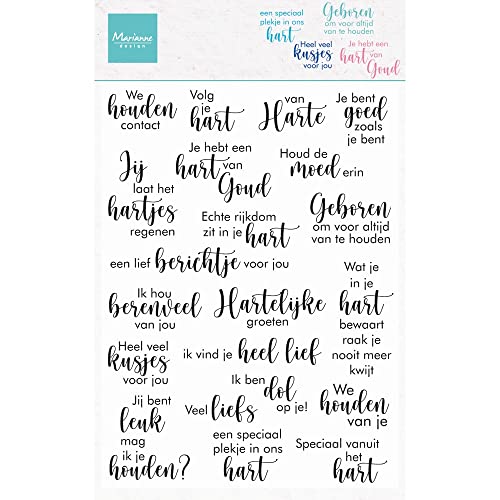 Marianne
design
een speciaal
plekje in ons
hart
Geboren
om voor altijd
van te houden
Heel veel
kusjes
voor jou
Je hebt een
hart van
Goud
We
houden
contact
Volg
je
hart
van
Harte
Je bent
goed
zoals
je bent
Jij
laat het
hartjes
regenen
Je hebt een
hart van
Goud
Houd de
moed erin
Echte rijkdom
zit in je
hart
Geboren
om voor altijd
van te houden
een lief berichtje voor jou
Wat je
in je
hart
bewaart
raak je
nooit meer
kwijt
Ik hou
berenveel
van jou
Hartelijke
groeten
Heel veel
kusjes
voor jou
ik vind je heel lief
Ik ben
dol
op je!
We
houden
van je
Jij bent
leuk
mag
ik je
houden?
Veel liefs
een speciaal
plekje in ons
hart
Speciaal vanuit
het
hart